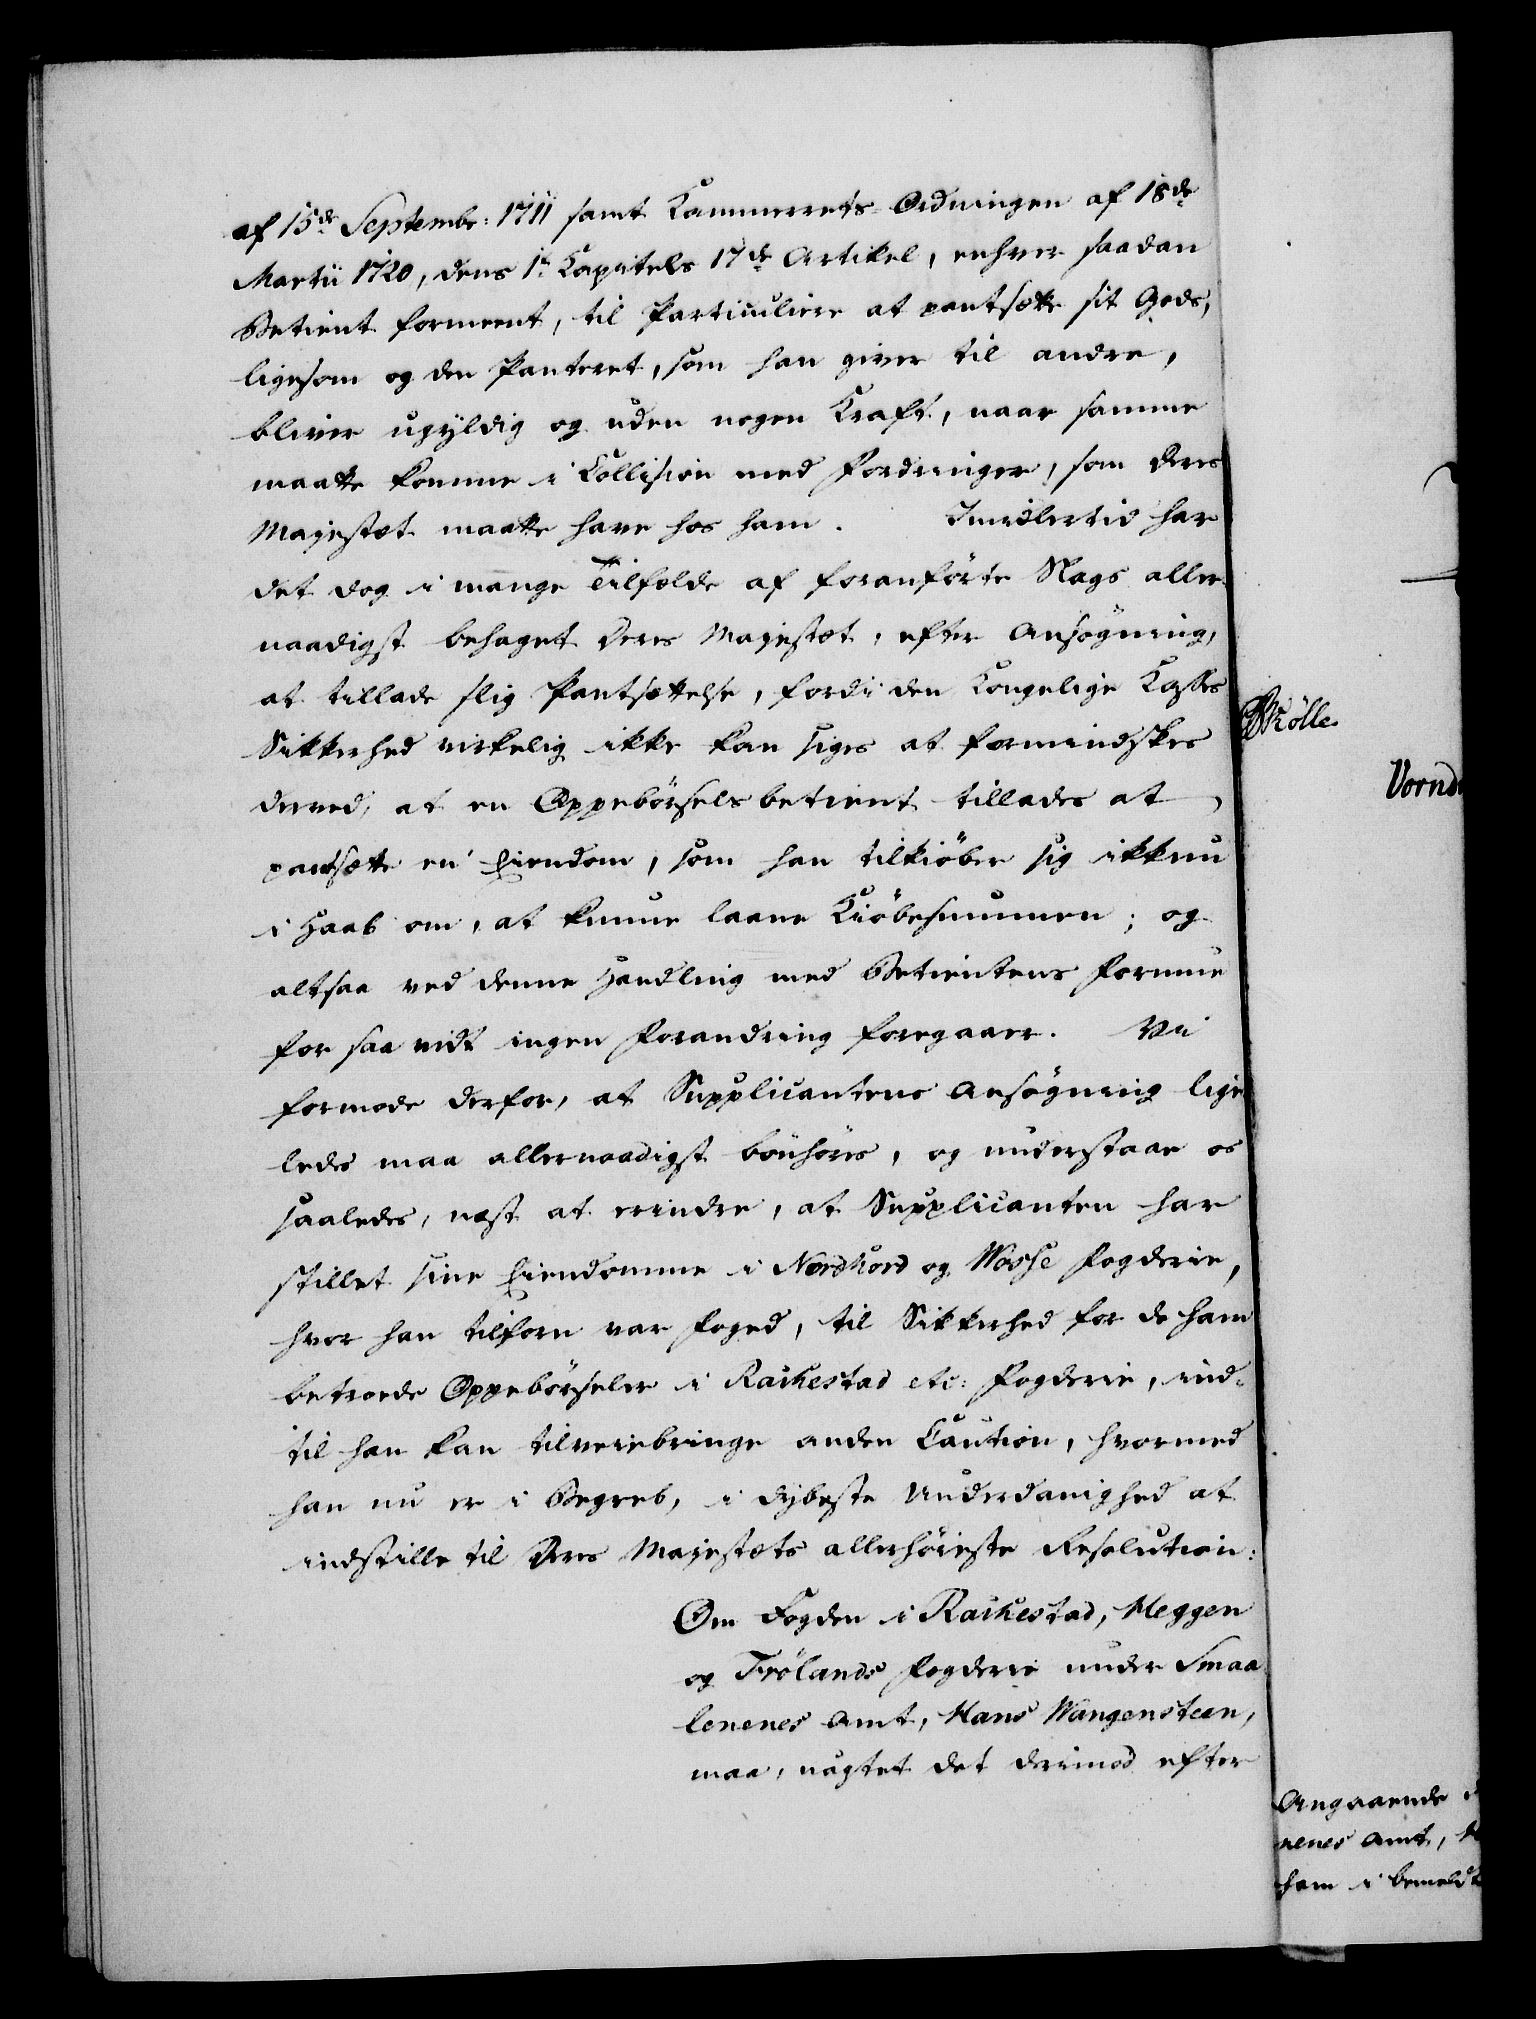 af 15de Septembr: 1711 samt Kammerrets-Ordningen af 18de
Martii 1720, dens 1te Kapitels 17de Artikel, enhver saadan
Betient formeent, til Particuliere at pantsætte sit Gods,
ligesom og den Panteret, som han giver til andre,
bliver ugyldig og uden nogen Kraft, naar samme
maatte komme i Collision med Fordringer, som Deres
Majestæt maatte have hos ham. Imidlertid har
det dog i mange Tilfælde af foranførte Slags aller-
naadigst behaget Deres Majestæt, efter Ansøgning,
at tillade slig Pantsættelse, fordi den Kongelige Kasses
Sikkerhed virkelig ikke kan siges at formindskes
derved, at en Oppebörselsbetient tillades at
pantsætte en Eiendom, som han tilkiöber sig ikkun
i Haab om, at kunne laane Kiöbesummen; og
altsaa ved denne Handling med Betientens Formue
for saa vidt ingen Forandring foregaaer. Vi
formode derfor, at Supplicantens Ansögning lige
ledes maa allernaadigst bönhöres, og understaae os
saaledes, næst at erindre, at Supplicanten har
stillet sine Eiendomme i Nordhord og Wosse Fogderie,
hvor han tilforn var Foged, til Sikkerhed for de ham
betroede Oppebörseler i Rackestad etc: Fogderie, ind-
til han kan tilveiebringe anden Caution, hvormed
han nu er i Begreb, i dybeste Underdanighed at
indstille til Deres Majestæts allerhöieste Resolution:
Om Fogden i Rackestad, Heggen
og Frölands Fogderie under Smaa
lenenes Amt, Hans Wangensteen,
maa, uagtet det derimod efter
Mölle
Vornd
Angaaende
nenes Amt, H
ham i bemeldte